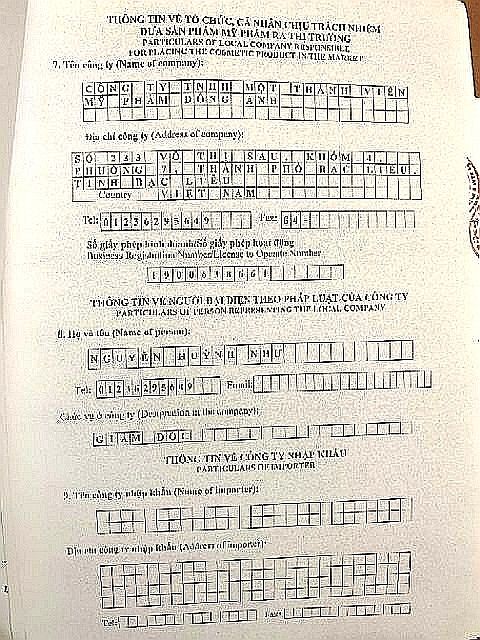 THÔNG TIN VỀ TỔ CHỨC, CÁ NHÂN CHỊU TRÁCH NHIỆM
ĐƯA SẢN PHẨM MỸ PHẨM RA THỊ TRƯỜNG
PARTICULARS OF LOCAL COMPANY RESPONSIBLE
FOR PLACING THE COSMETIC PRODUCT IN THE MARKET
7. Tên công ty (Name of company):
CÔNG TY TNHH MỘT THÀNH VIÊN
MỸ PHẨM ĐÔNG ANH
Địa chỉ công ty (Address of company):
SỐ 233 VÕ THỊ SÁU, KHÓM 4,
PHƯỜNG 7, THÀNH PHỐ BẠC LIÊU,
TỈNH BẠC LIÊU
Country VIỆT NAM
Tel: 01236295649 Fax: 84-
Số giấy phép kinh doanh/Số giấy phép hoạt động
Business Registration Number/License to Operate Number
1900638661
THÔNG TIN VỀ NGƯỜI ĐẠI DIỆN THEO PHÁP LUẬT CỦA CÔNG TY
PARTICULARS OF PERSON REPRESENTING THE LOCAL COMPANY
8. Họ và tên (Name of person):
NGUYỄN HUỲNH NHƯ
Tel: 01236295649 Email:
Chức vụ ở công ty (Designation in the company):
GIÁM ĐỐC
THÔNG TIN VỀ CÔNG TY NHẬP KHẨU
PARTICULARS OF IMPORTER
9. Tên công ty nhập khẩu (Name of importer):
Địa chỉ công ty nhập khẩu (Address of importer):
Tel: Fax: